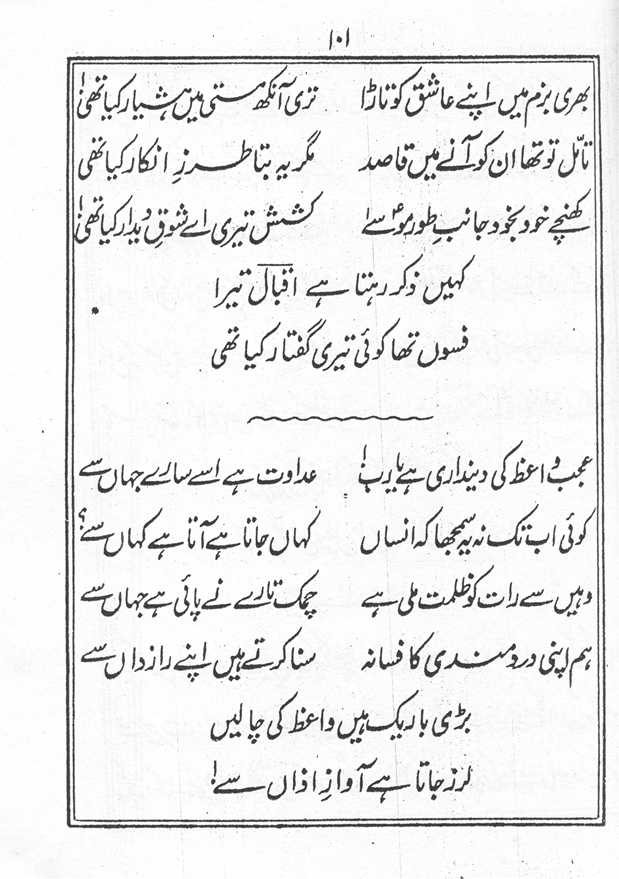 ۱۰۱
بھری بزم میں اپنے عاشق کو تاڑا تری آنکھ مستی میں ہشیار کیا تھی!
تامّل تو تھا ان کو آنے میں قاصد مگر یہ بتا طرزِ انکار کیا تھی
کھنچے خود بخود جانبِ طور موسےٰ کشش تیری اے شوقِ دیدار کیا تھی!
کہیں ذکر رہتا ہے اقبال تیرا
فسوں تھا کوئی تیری گفتار کیا تھی
عجب واعظ کی دینداری ہے یارب! عداوت ہے اسے سارے جہاں سے
کوئی اب تک نہ یہ سمجھا کہ انساں کہاں جاتا ہے آتا ہے کہاں سے؟
وہیں سے رات کو ظلمت ملی ہے چمک تارے نے پائی ہے جہاں سے
ہم اپنی دردمندی کا فسانہ سنا کرتے ہیں اپنے رازداں سے
بڑی باریک ہیں واعظ کی چالیں
لرز جاتا ہے آوازِ اذاں سے!